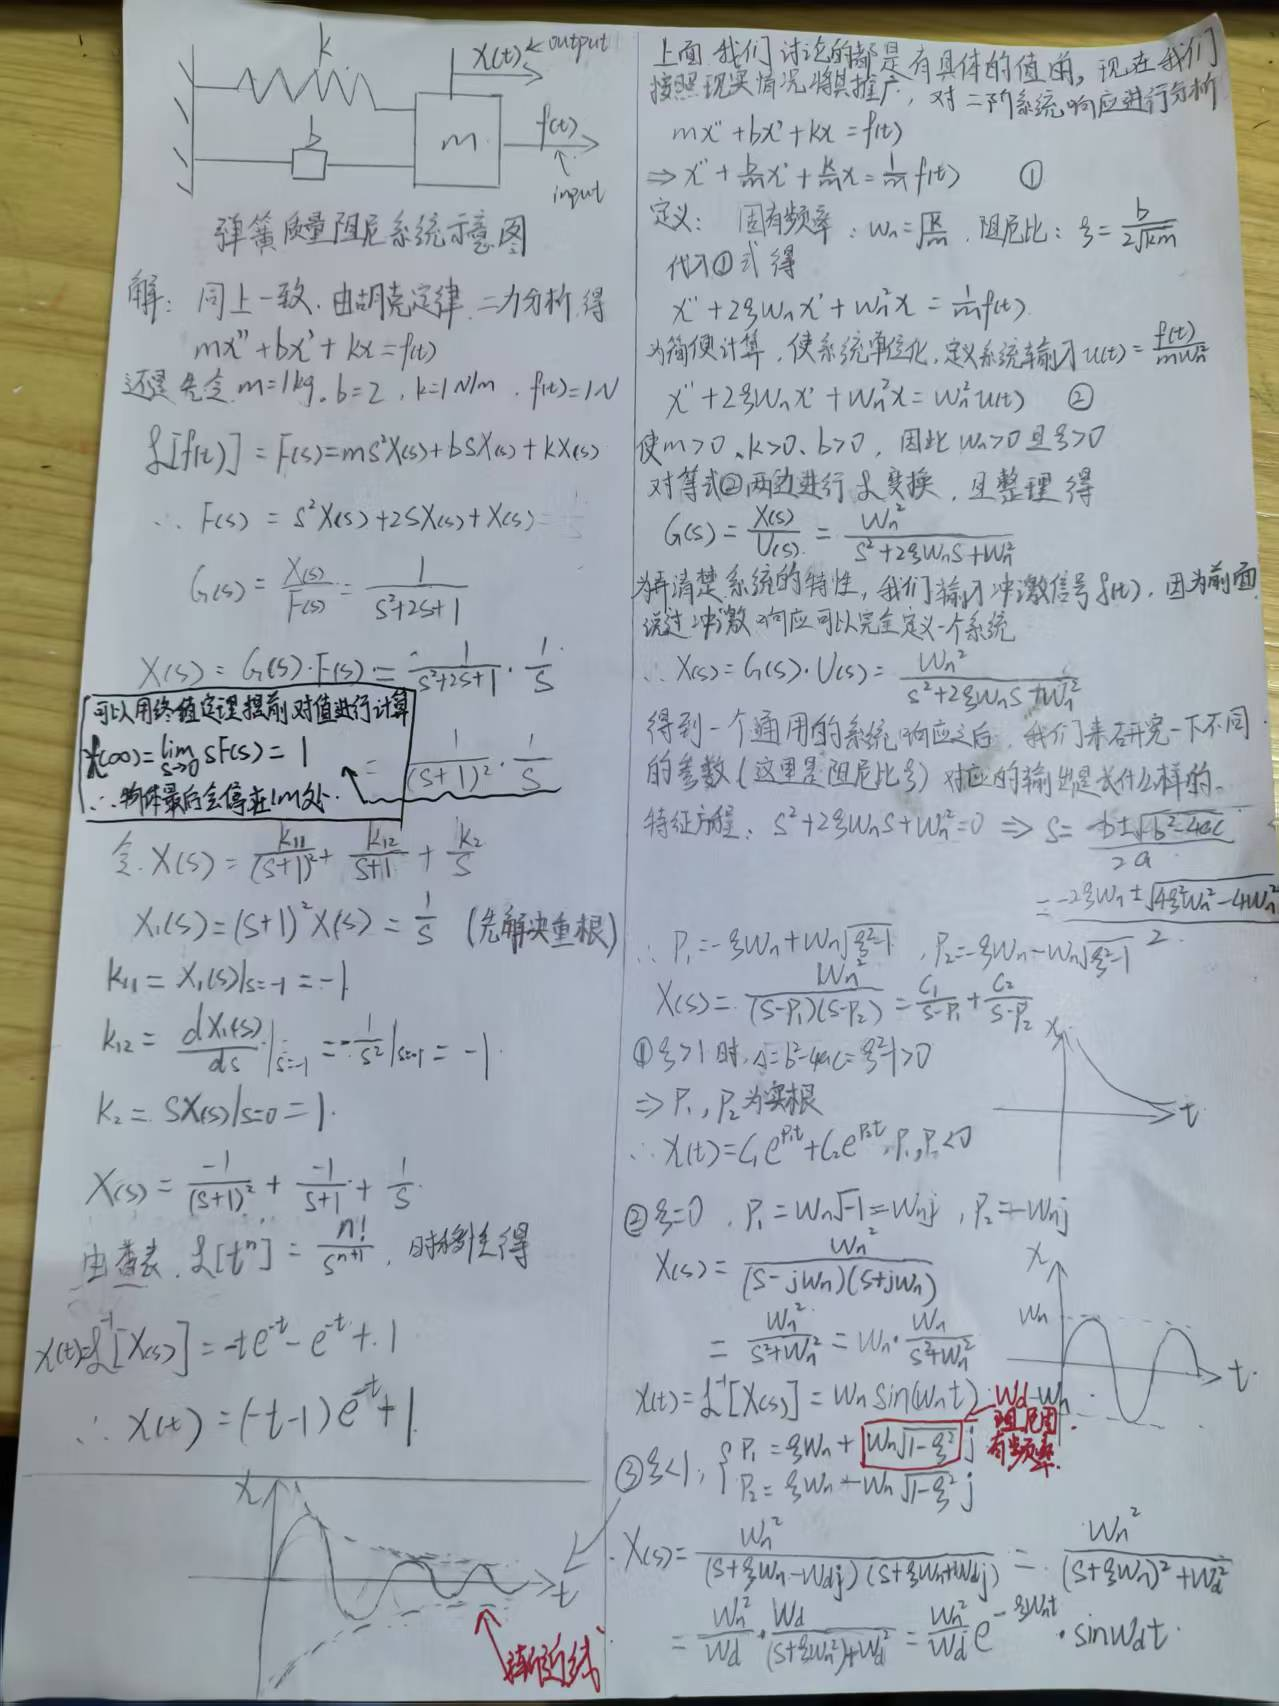 k
x(t) ← output
b
m
f(t)
↑
input
弹簧质量阻尼系统示意图
解：同上一致．由胡克定律．二力分析．得
mx″+bx′+kx=f(t)
还是先令 m=1kg。b=2，k=1N/m，f(t)=1N
ℒ[f(t)] = F(s)=ms²X(s)+bsX(s)+kX(s)
∴ F(s) = s²X(s)+2sX(s)+X(s)
G(s) = X(s)/F(s) = 1/(s²+2s+1)
X(s) = G(s)·F(s) = 1/(s²+2s+1) · 1/s
= 1/(s+1)² · 1/s
可以用终值定理提前对值进行计算
x(∞)=lim s→0 sF(s) = 1
∴物体最后会停在1m处．
令．X(s) = k₁₁/(s+1)² + k₁₂/(s+1) + k₂/s
X₁(s) = (s+1)²X(s) = 1/s （先解决重根）
k₁₁ = X₁(s)|s=-1 = -1
k₁₂ = dX₁(s)/ds |s=-1 = -1/s² |s=-1 = -1
k₂ = sX(s)|s=0 = 1.
X(s) = -1/(s+1)² + -1/(s+1) + 1/s
由查表．ℒ[tⁿ] = n!/sⁿ⁺¹，时移性得
x(t)=ℒ⁻¹[X(s)] = -te⁻ᵗ-e⁻ᵗ+1
∴ x(t) = (-t-1)e⁻ᵗ+1
x
t
渐近线
上面，我们讨论的都是有具体的值的，现在我们
按照现实情况将其推广，对二阶系统响应进行分析
mx″+bx′+kx=f(t)
⇒ x″+b/m x′+k/m x=1/m f(t) ①
定义：固有频率：ωn=√(k/m)，阻尼比：ξ=b/(2√km)
代入①式得
x″+2ξωnx′+ωn²x = 1/m f(t)
为简便计算，使系统单位化，定义系统输入u(t)=f(t)/(mωn²)
x″+2ξωnx′+ωn²x=ωn²u(t) ②
使m>0、k>0、b>0，因此ωn>0且ξ>0
对等式②两边进行ℒ变换，且整理得
G(s) = X(s)/U(s) = ωn²/(s²+2ξωns+ωn²)
为弄清楚系统的特性，我们输入冲激信号δ(t)，因为前面
说过冲激响应可以完全定义一个系统
∴ X(s)=G(s)·U(s)= ωn²/(s²+2ξωns+ωn²)
得到一个通用的系统响应之后，我们来研究一下不同
的参数（这里是阻尼比ξ）对应的输出是长什么样的。
特征方程：s²+2ξωns+ωn²=0 ⇒ s= (-b±√(b²-4ac))/2a
= (-2ξωn±√(4ξ²ωn²-4ωn²))/2
∴ P₁=-ξωn+ωn√(ξ²-1)，P₂=-ξωn-ωn√(ξ²-1)
X(s)= ωn²/((s-P₁)(s-P₂)) = C₁/(s-P₁) + C₂/(s-P₂)
①ξ>1时，Δ=b²-4ac=ξ²-1>0
⇒ P₁，P₂为实根
∴ x(t)=C₁e^(P₁t)+C₂e^(P₂t)，P₁，P₂<0
x
t
②ξ=0，P₁=ωn√-1=ωnj，P₂=-ωnj
X(s) = ωn²/((s-jωn)(s+jωn))
= ωn²/(s²+ωn²) = ωn·ωn/(s²+ωn²)
x(t)=ℒ⁻¹[X(s)] = ωn sin(ωnt)
x
ωn
t
③ξ<1：{P₁=ξωn+ωn√(1-ξ²)j
P₂=ξωn-ωn√(1-ξ²)j
← ωd-ωn
阻尼固
有频率
X(s)= ωn²/((s+ξωn-ωdj)(s+ξωn+ωdj)) = ωn²/((s+ξωn)²+ωd²)
= ωn²/ωd · ωd/((s+ξωn²)+ωd²) = ωn²/ωd e^(-ξωnt) · sinωdt.